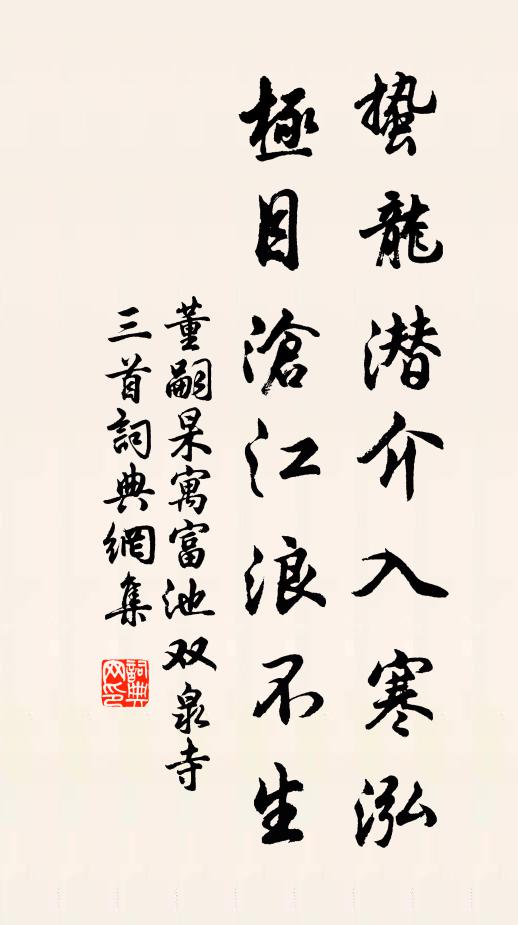 蟄龍潜介入寒泓
極目滄江浪不生
董嗣杲寓富池双泉寺
三首詞典網集
詞典网印